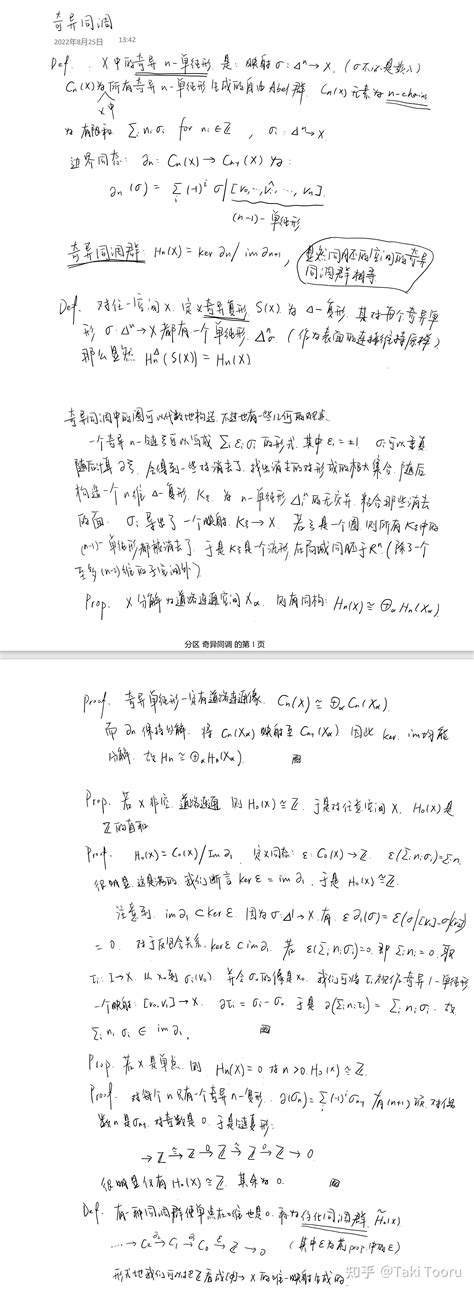 奇异同调
2022年8月25日 13:42
Def. X中的奇异 n-单纯形 是: 映射 σ: Δⁿ→X. (σ不必是嵌入)
Cn(X)为所有奇异 n-单纯形生成的自由Abel群 Cn(X)元素为 n-chains
X中
为有限和 Σ niσi for ni∈Z, σi: Δⁿ→X
边界同态: ∂n: Cn(X)→Cn-1(X) 为:
∂n(σ) = Σi (-1)^i σ|[v0,…,v̂i,…,vn].
(n-1)-单纯形
奇异同调群: Hn(X) = ker ∂n / im ∂n+1,
显然同胚的空间的奇异
同调群相等
Def. 对任一空间X. 定义奇异复形 S(X) 为 Δ-复形, 其对每个奇异单
形 σ: Δⁿ→X 都有一个单纯形 Δⁿσ
那么显然 Hn^Δ(S(X)) = Hn(X)
奇异同调中的圈可以代数地构造, 不过也有一些几何的观点
一个奇异 n-链ξ可以写成 Σi εiσi 的形式, 其中 εi = ±1 σi可以重复
随后计算∂ξ, 会得到一些对消去了, 找出消去的对形成的极大集合, 随后
构造一个n维 Δ-复形 Kξ 为 n-单纯形 Δⁿi 的无交并, 粘合那些消去
的面. σi 导出了一个映射 Kξ→X. 若ξ是一个圈 则所有Kξ中的
(n-1)-单纯形都被消去了, 于是Kξ是一个流形, 在局域同胚于Rⁿ (除了一个
至多(n-2)维的子空间外)
Prop. X分解为道路连通空间 Xα. 则有同构: Hn(X) ≅ ⊕α Hn(Xα)
分区 奇异同调 的第 1 页
Proof. 奇异单纯形一定有道路连通像. Cn(X) ≅ ⊕α Cn(Xα).
而 ∂n 保持分解. 将 Cn(Xα) 映射至 Cn-1(Xα) 因此 ker, im均能
分解. 故 Hn ≅ ⊕α Hn(Xα).
Prop. 若X非空, 道路连通 则 H0(X) ≅ Z. 于是对任意空间X, H0(X)是
Z的直和
Proof. H0(X) = C0(X)/Im ∂1. 定义同态: ε: C0(X)→Z. ε(Σi niσi) = Σi ni
很明显, 这是满的. 我们断言 ker ε = im ∂1, 于是 H0(X) ≅ Z.
注意到 im ∂1 ⊂ ker ε. 因为 σ: Δ¹→X. 有 ε∂1(σ) = ε(σ|[v1] - σ|[v0])
= 0. 对于反包含关系. ker ε ⊂ im ∂1. 若 ε(Σi niσi)=0. 即 Σi ni = 0. 取
τi: I→X. 从 x0 到 σi(v0). 并令 σ0 的像是 x0. 我们可将 τi 视作奇异 1-单纯形
一个映射: [v0,v1]→X. ∂τi = σi - σ0. 于是 ∂(Σi niτi) = Σi niσi. 故
Σi ni σi ∈ im ∂1.
Prop. 若X是单点. 则 Hn(X) = 0 对 n>0. H0(X) ≅ Z.
Proof. 对每个n只有一个奇异 n-复形. ∂(σn) = Σi (-1)^i σn-1 为(n+1)项. 对偶
数n是σn-1, 对奇数是0. 于是链复形:
→Z →≅ Z →0 Z →≅ Z →0 Z → 0
很明显仅有 H0(X) ≅ Z. 其余为0.
Def. 有一种同调群使单点在0维也是0. 称为约化同调群. H̃n(X)
…→ C2 →∂2 C1 →∂1 C0 →ε Z → 0 (其中ε为前prop.中的ε)
形式地我们可以把Z看成
知乎 @Taki Tooru